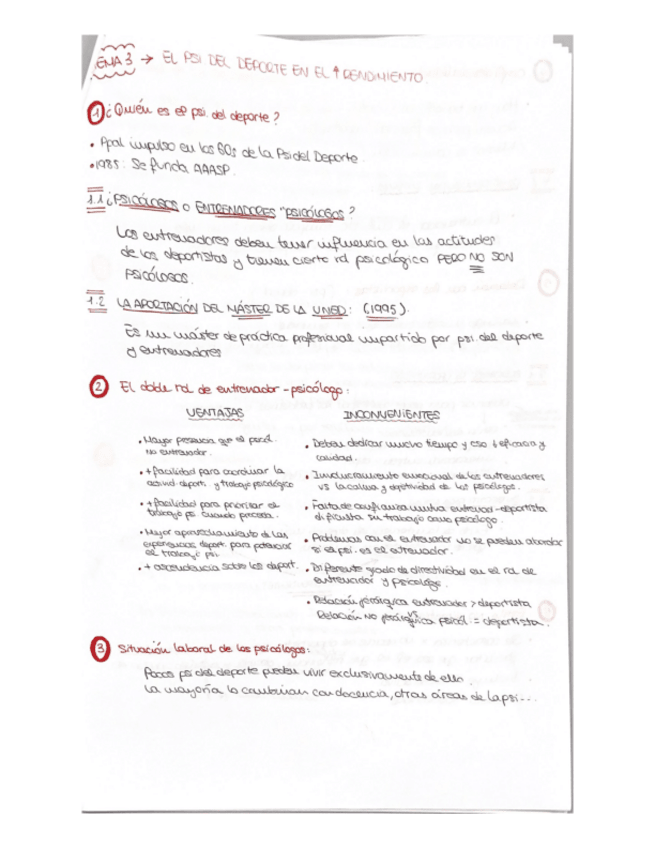 TEMA 3 → EL PSI DEL DEPORTE EN EL ↑ RENDIMIENTO.
① ¿Quién es el psi. del deporte?
• Ppal impulso en los 60s de la Psi del Deporte.
• 1985: Se funda AAASP.
1.1 ¿PSICÓLOGOS O ENTRENADORES "PSICÓLOGOS"?
Los entrenadores deben tener influencia en las actitudes
de los deportistas y tienen cierto rol psicológico PERO NO SON
PSICÓLOGOS.
1.2 LA APORTACIÓN DEL MÁSTER DE LA UNED: (1995).
Es un máster de práctica profesional impartido por psi. del deporte
y entrenadores
② El doble rol de entrenador-psicólogo:
VENTAJAS
• Mayor presencia que el psicól.
no entrenador.
• + facilidad para coordinar la
activid. deport. y trabajo psicológico
• + facilidad para priorizar el
trabajo psi cuando precisa.
• Mayor aprovechamiento de las
experiencias deport. para potenciar
el trabajo psi.
• + ascendencia sobre los deport.
INCONVENIENTES
• Deben dedicar mucho tiempo y eso ↓ eficacia y
calidad.
• Involucramiento emocional de los entrenadores
vs la calma y objetividad de los psicólogos.
• Falta de confianza mutua entrenad-deportista
dificulta su trabajo como psicólogo.
• Problemas con el entrenador no se pueden abordar
si el psi. es el entrenador.
• Diferente grado de directividad en el rol de
entrenador y psicólogo.
• Relación jerárquica entrenador > deportista
vs
Relación NO jerárquica psicól. = deportista.
③ Situación laboral de los psicólogos:
Pocos psi del deporte pueden vivir exclusivamente de ello.
La mayoría lo combinan con docencia, otras áreas de la psi...